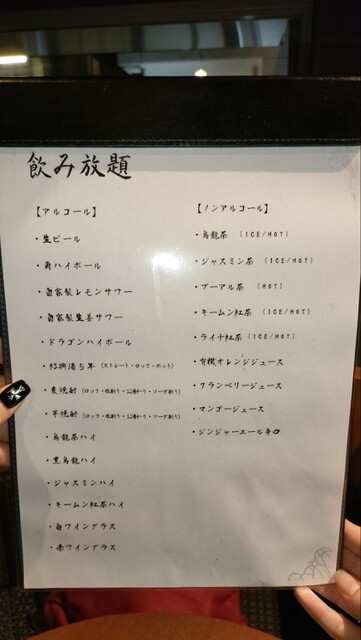 飲み放題
【アルコール】
・生ビール
・角ハイボール
・自家製レモンサワー
・自家製生姜サワー
・ドラゴンハイボール
・紹興酒5年 (ストレート・ロック・ホット)
・麦焼酎 (ロック・水割り・お湯わり・ソーダ割り)
・芋焼酎 (ロック・水割り・お湯わり・ソーダ割り)
・烏龍茶ハイ
・黒烏龍ハイ
・ジャスミンハイ
・キームン紅茶ハイ
・白ワイングラス
・赤ワイングラス
【ノンアルコール】
・烏龍茶 (ICE/HOT)
・ジャスミン茶 (ICE/HOT)
・プーアル茶 (HOT)
・キームン紅茶 (ICE/HOT)
・ライチ紅茶 (ICE/HOT)
・有機オレンジジュース
・クランベリージュース
・マンゴージュース
・ジンジャーエール辛口